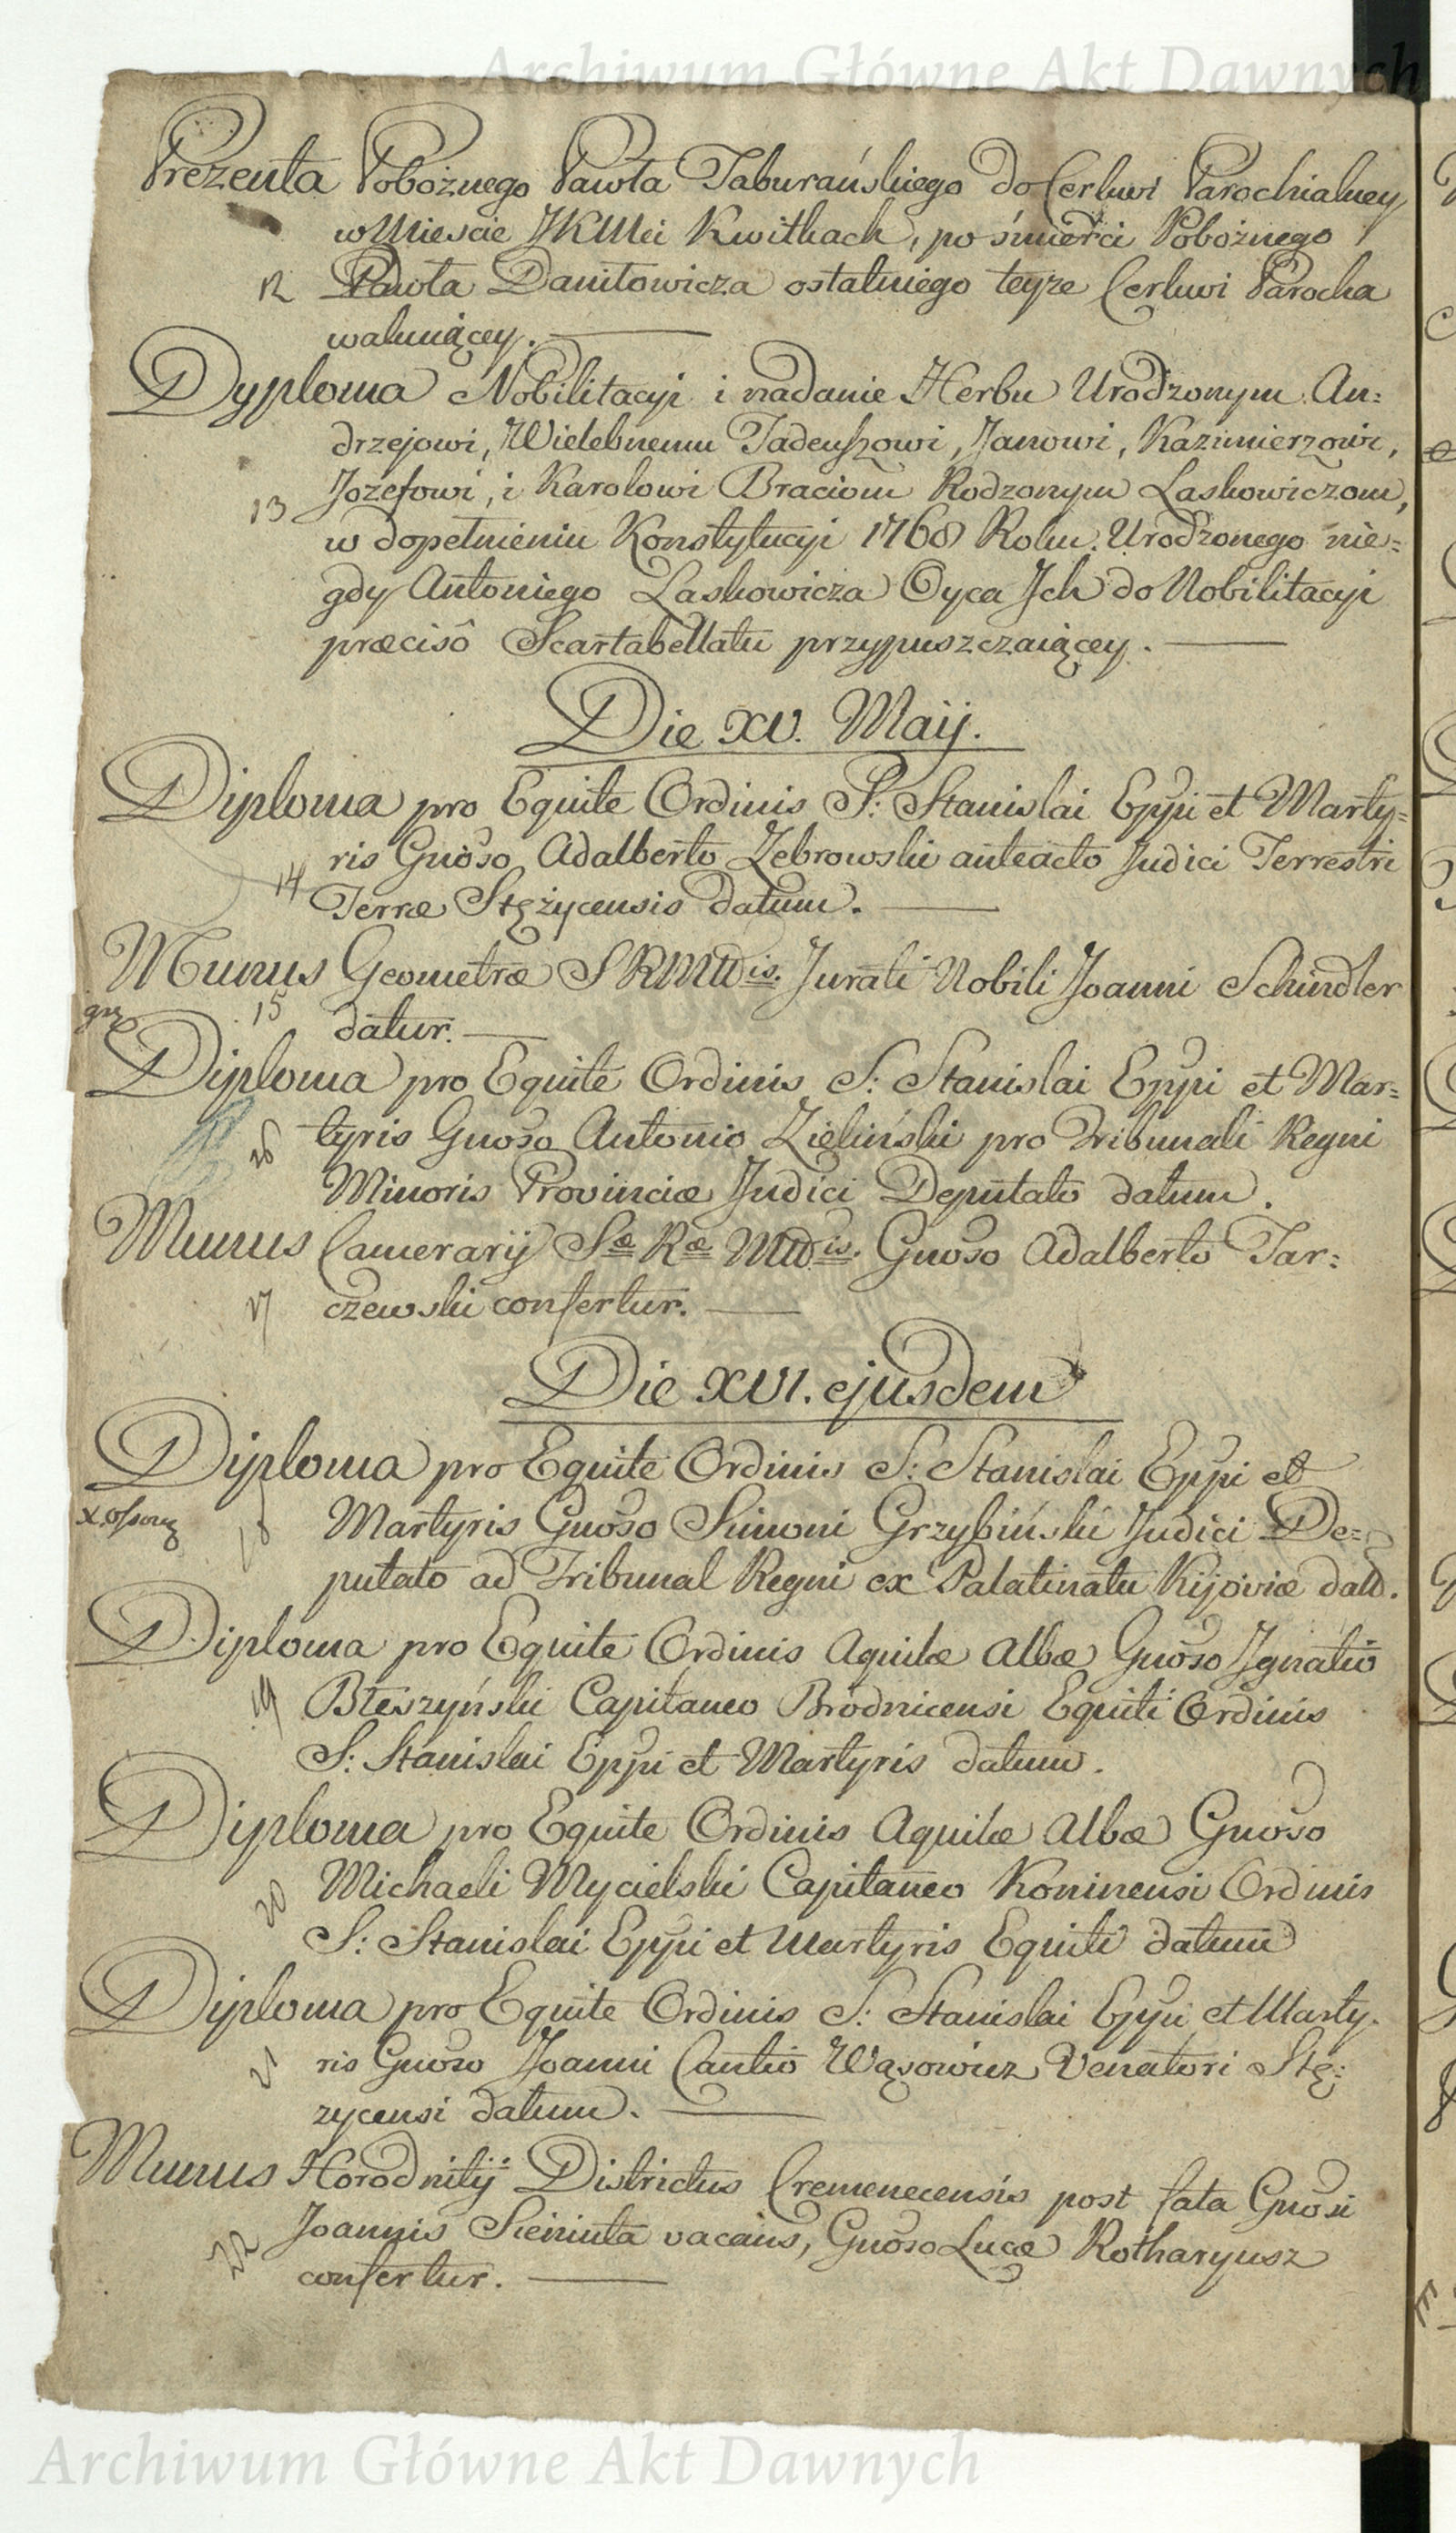 Archiwum Główne Akt Dawnych
Prezenta Pobożnego Pawła Taburańskiego do Cerkwi Parochialney
w Mieście JKMci Kwitkach, po śmierci Pobożnego
12 Pawła Daniłowicza ostatniego teyże Cerkwi Parocha
wakuiącey.
Dyploma Nobilitacyi i nadanie Herbu Urodzonym An=
drzejowi, Wielebnemu Tadeuszowi, Janowi, Kazimierzowi,
13 Jozefowi, i Karolowi Braciom Rodzonym Laskowiczom,
w dopełnieniu Konstytucyi 1768 Roku. Urodzonego nie=
gdy Antoniego Laskowicza Oyca Jch do Nobilitacyi
præcisô Scartabellatu przypuszczaiącey.
Die XV. Maij.
Diploma pro Equite Ordinis S: Stanislai Eppi et Marty=
ris Gnoso Adalberto Zebrowski anteacto Judici Terrestri
14 Terræ Stężycensis datum.
Munus Geometræ SRMttis. Jurati Nobili Joanni Schindler
15 datur.
Diploma pro Equite Ordinis S: Stanislai Eppi et Mar=
16 tyris Gnoso Antonio Zieliński pro Tribunali Regni
Minoris Provinciæ Judici Deputato datum.
Munus Camerarij Sæ Ræ Mttis. Gnoso Adalberto Tar=
17 czewski confertur.
Die XVI. ejusdem
Diploma pro Equite Ordinis S: Stanislai Eppi et
18 Martyris Gnoso Simoni Grzybiński Judici De=
putato ad Tribunal Regni ex Palatinatu Kijoviæ datũ.
Diploma pro Equite Ordinis Aquilæ Albæ Gnoso Jgnatio
19 Błeszyński Capitaneo Brodnicensi Equiti Ordinis
S: Stanislai Eppi et Martyris datum.
Diploma pro Equite Ordinis Aquilæ Albæ Gnoso
20 Michaeli Mycielski Capitaneo Koninensi Ordinis
S: Stanislai Eppi et Martyris Equiti datum
Diploma pro Equite Ordinis S: Stanislai Eppi et Marty.
21 ris Gnoso Joanni Cantio Wąsowicz Venatori Stę:
zycensi datum.
Munus Horodnitij Districtus Cremenecensis post fata Gnosi
22 Joannis Sieniuta vacans, Gnoso Lucæ Rotharyusz
confertur.
Archiwum Główne Akt Dawnych